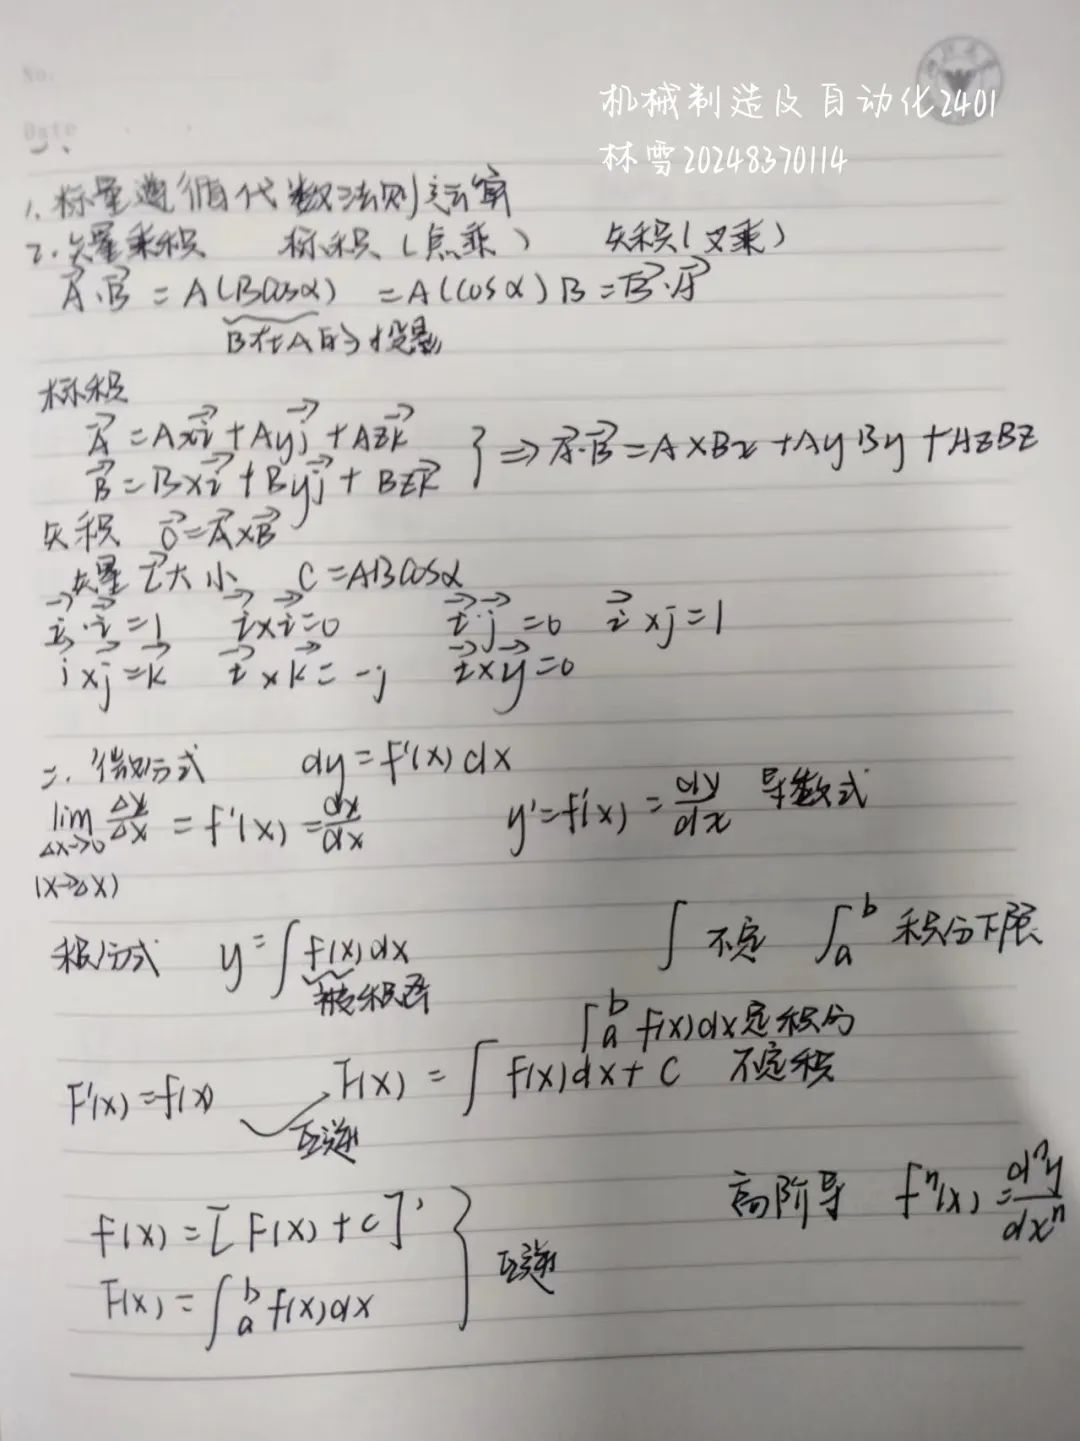 No.
Date
机械制造及自动化2401
林雪20248370114
1. 标量遵循代数法则运算
2. 矢量乘积 标积(点乘) 矢积(叉乘)
A⃗·B⃗ = A(Bcosα) = A(cosα)B = B⃗·A⃗
B在A的投影
标积
A⃗ = Axi⃗ + Ayj⃗ + Azk⃗
B⃗ = Bxi⃗ + Byj⃗ + Bzk⃗ } ⇒ A⃗·B⃗ = AxBx + AyBy + AzBz
矢积 C⃗ = A⃗×B⃗
矢量C⃗大小 C = ABcosα
i⃗·i⃗ = 1 i⃗×i⃗ = 0 i⃗·j⃗ = 0 i⃗×j = 1
i⃗×j⃗ = k⃗ i⃗×k⃗ = -j i⃗×y⃗ = 0
二. 微分式 dy = f'(x)dx
lim Δx→0 Δy/Δx = f'(x) = dx/dx y' = f'(x) = dy/dx 导数式
(x→Δx)
积分式 y = ∫f(x)dx ∫ 不定 ∫ₐᵇ 积分下限
被积函
∫ₐᵇ f(x)dx定积分
F'(x) = f(x) F(x) = ∫f(x)dx + C 不定积
互逆
高阶导 fⁿ(x) = dⁿy/dxⁿ
f(x) = [F(x) + C]'
F(x) = ∫ₐᵇ f(x)dx } 互逆